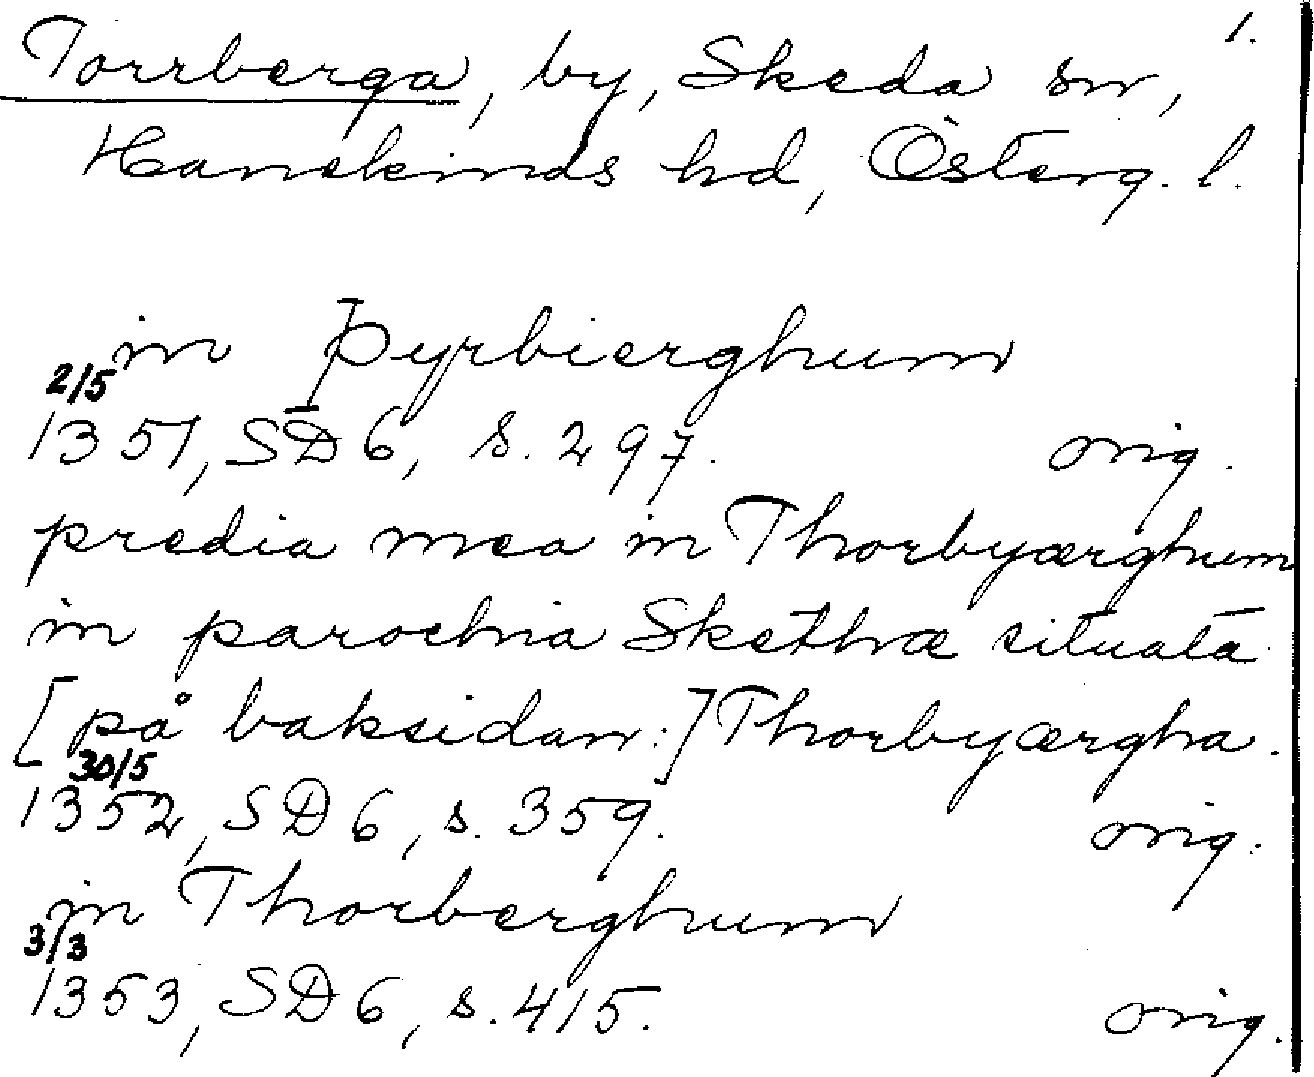 1.
Torrberga, by, Skeda sn,
Hanekinds hd, Österg. l.
in Þyrbierghum
2/5
1351, SD 6, s. 297. orig.
predia mea in Thorbyærghum
in parochia Skethæ situata
[på baksidan:] Thorbyærgha.
30/5
1352, SD 6, s. 359. orig.
in Thorberghum
3/3
1353, SD 6, s. 415. orig.